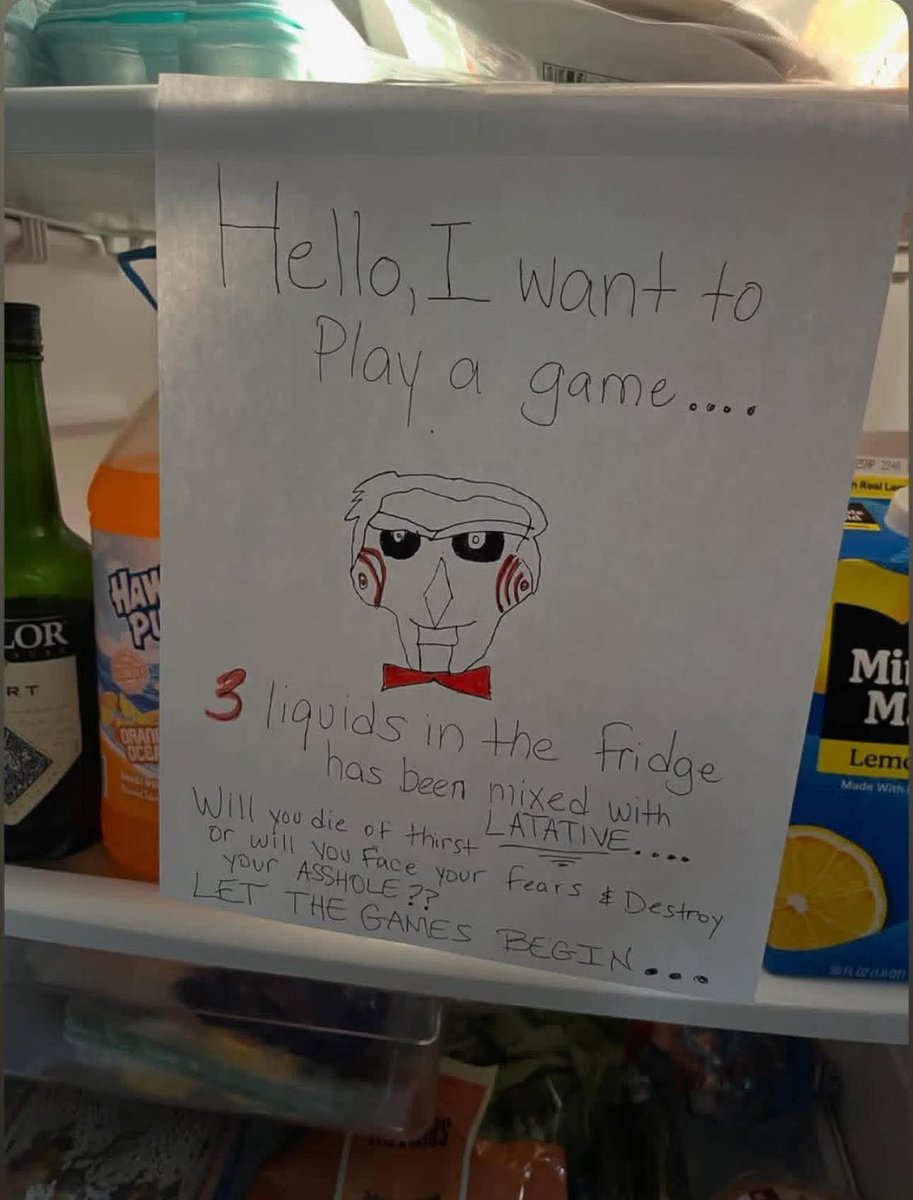 Hello, I want to
Play a game....
3 liquids in the fridge
has been mixed with
LATATIVE....
Will you die of thirst
or will you face your fears & Destroy
your ASSHOLE??
LET THE GAMES BEGIN...
LOR
RT
HAW
PU
ORAN
OCE
Real Le
Mi
M
Lemo
Made With